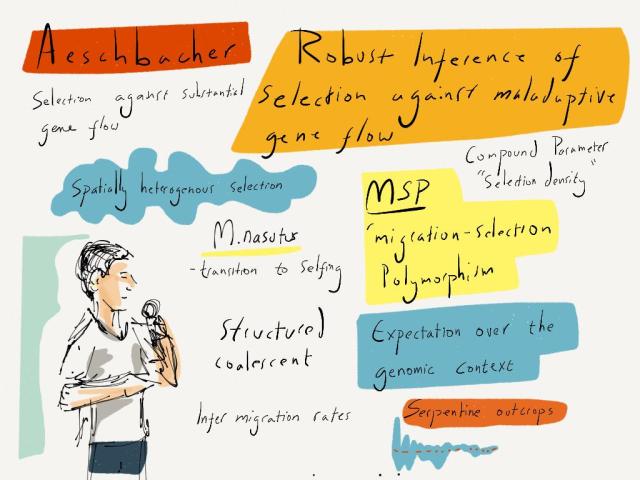 Aeschbacher
Robust Inference of
Selection against maladaptive
gene flow
Selection against substantial
gene flow
Compound Parameter
"Selection density"
Spatially heterogenous selection
MSP
"migration-selection
Polymorphism
M. nasutus
- transition to selfing
Structured
coalescent
Expectation over the
genomic context
Infer migration rates
Serpentine outcrops